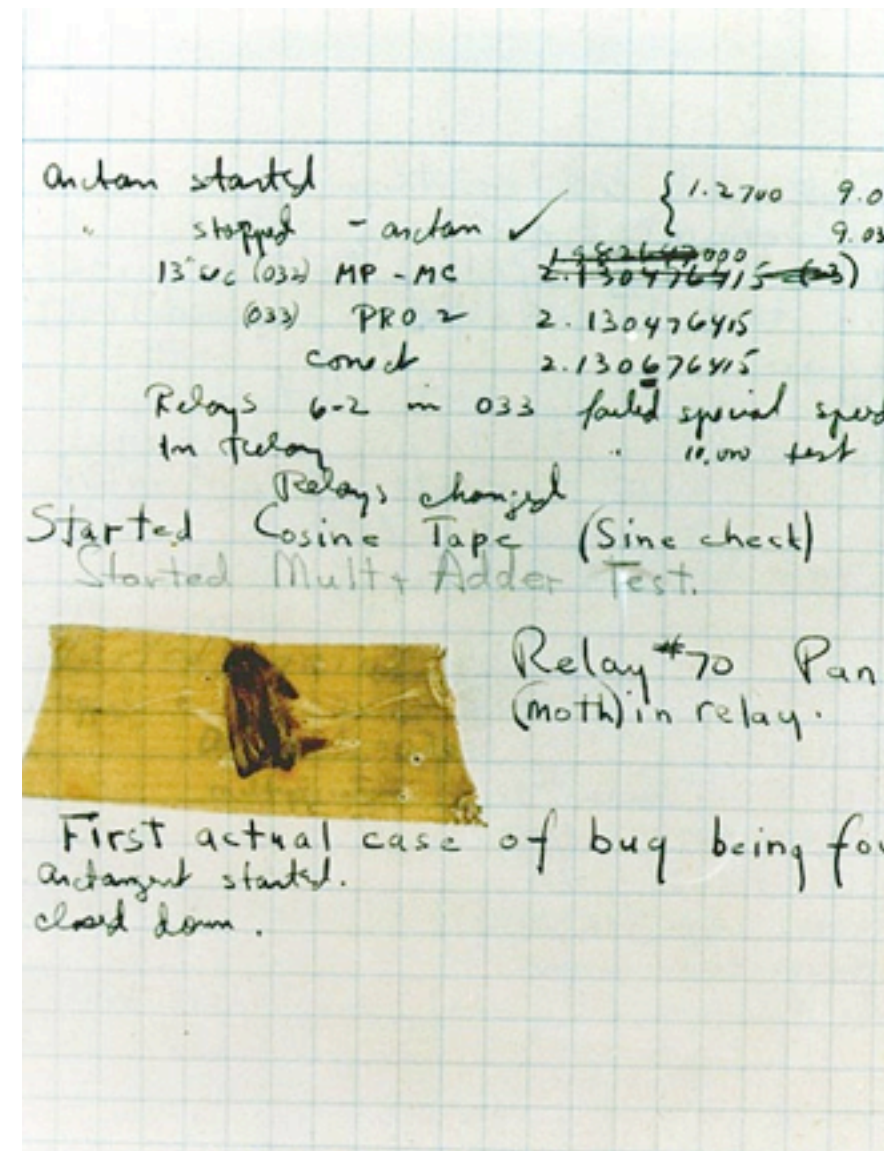 arctan started { 1.2700 9.0
" stopped - arctan ✓ 9.03
13" uc (032) MP - MC 1.982647000
2.130476415 (-3)
(033) PRO 2 2.130476415
correct 2.130676415
Relays 6-2 in 033 failed special speed
In Relay " 10,000 test
Relays changed
Started Cosine Tape (Sine check)
Started Mult+ Adder Test.
Relay #70 Pan
(moth) in relay.
First actual case of bug being fou
arctangent started.
closed down.